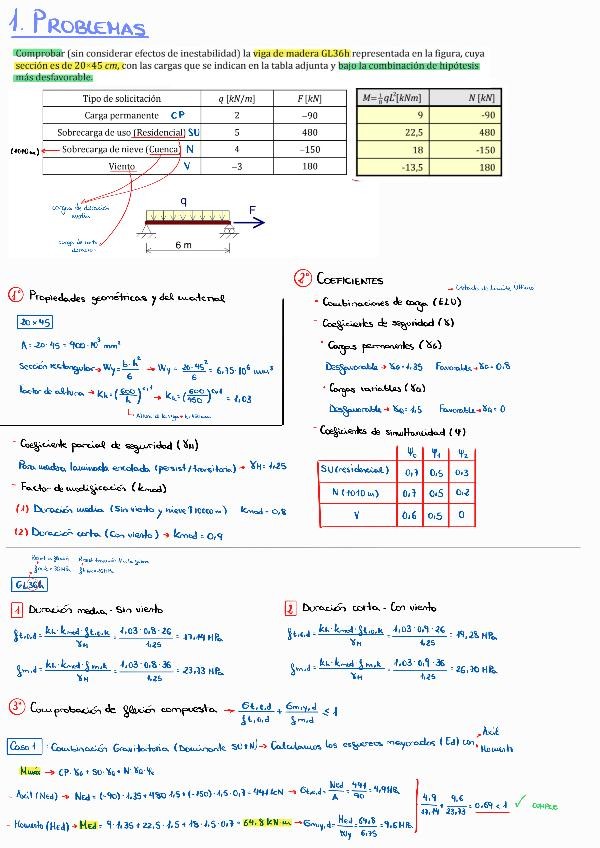 1. PROBLEMAS
Comprobar (sin considerar efectos de inestabilidad) la viga de madera GL36h representada en la figura, cuya
sección es de 20×45 cm, con las cargas que se indican en la tabla adjunta y bajo la combinación de hipótesis
más desfavorable.
Tipo de solicitación q [kN/m] F [kN] M=⅛qL²[kNm] N [kN]
Carga permanente CP 2 −90 9 -90
Sobrecarga de uso (Residencial) SU 5 480 22,5 480
Sobrecarga de nieve (Cuenca) N 4 −150 18 -150
Viento V −3 180 -13,5 180
(1010 m)
cargas de duración
media
carga de corta
duración
q
F
6 m
1º Propiedades geométricas y del material
20 x 45
A = 20·45 = 900·10³ mm²
Sección rectangular → Wy = b·h²/6 → Wy = 20·45²/6 = 6,75·10⁶ mm³
Factor de altura → Kh = (600/h)^0,1 → Kh = (600/450)^0,1 = 1,03
- Coeficiente parcial de seguridad (γM)
Para madera laminada encolada (persist/transitoria) → γM = 1,25
- Factor de modificación (kmod)
(1) Duración media (Sin viento y nieve >1000 m) Kmod = 0,8
(2) Duración corta (Con viento) → kmod = 0,9
2º COEFICIENTES
→ Estado de Límite Último
· Combinaciones de carga (ELU)
- Coeficientes de seguridad (γ)
· Cargas permanentes (γG)
Desfavorable → γG = 1,35 Favorable → γG = 0,8
· Cargas variables (γQ)
Desfavorable → γQ = 1,5 Favorable → γQ = 0
- Coeficientes de simultaneidad (Ψ)
Ψ0 Ψ1 Ψ2
SU (residencial) 0,7 0,5 0,3
N (1010 m) 0,7 0,5 0,2
V 0,6 0,5 0
GL36h
1 Duración media - Sin viento
ft,0,d = kh·kmod·ft,0,k/γM = 1,03·0,8·26/1,25 = 17,14 MPa
fm,d = kh·kmod·fm,k/γM = 1,03·0,8·36/1,25 = 23,73 MPa
2 Duración corta - Con viento
ft,0,d = kh·kmod·ft,0,k/γM = 1,03·0,9·26/1,25 = 19,28 MPa
fm,d = kh·kmod·fm,k/γM = 1,03·0,9·36/1,25 = 26,70 MPa
3º Comprobación de flexión compuesta → σt,0,d/ft,0,d + σm,y,d/fm,d ≤ 1
Caso 1 · Combinación Gravitatoria (Dominante SU+N) → Calculamos los esfuerzos mayorados (Ed) con Axil
Momento
→ CP·γG + SU·γQ + N·γQ·Ψ0
- Axil (Ned) → Ned = (-90)·1,35 + 480·1,5 + (-150)·1,5·0,7 = 441 kN → σt,0,d = Ned/A = 441/90 = 4,9 MPa
- Momento (Med) → Med = 9·1,35 + 22,5·1,5 + 18·1,5·0,7 = 64,8 kN m → σm,y,d = Med/Wy = 64,8/6,75 = 9,6 MPa
4,9/17,14 + 9,6/23,73 = 0,69 < 1 ✓ CUMPLE